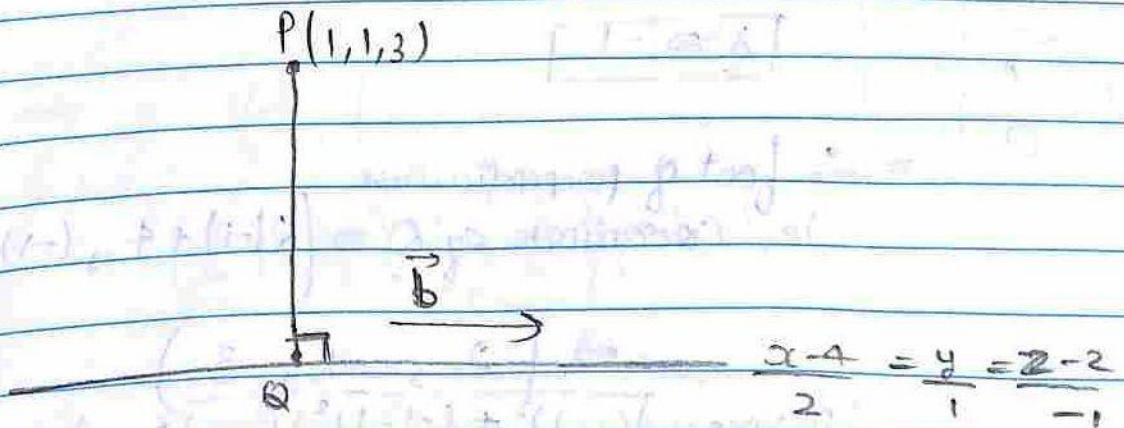 P(1,1,3)
b
Q
x-4/2 = y/1 = z-2/-1